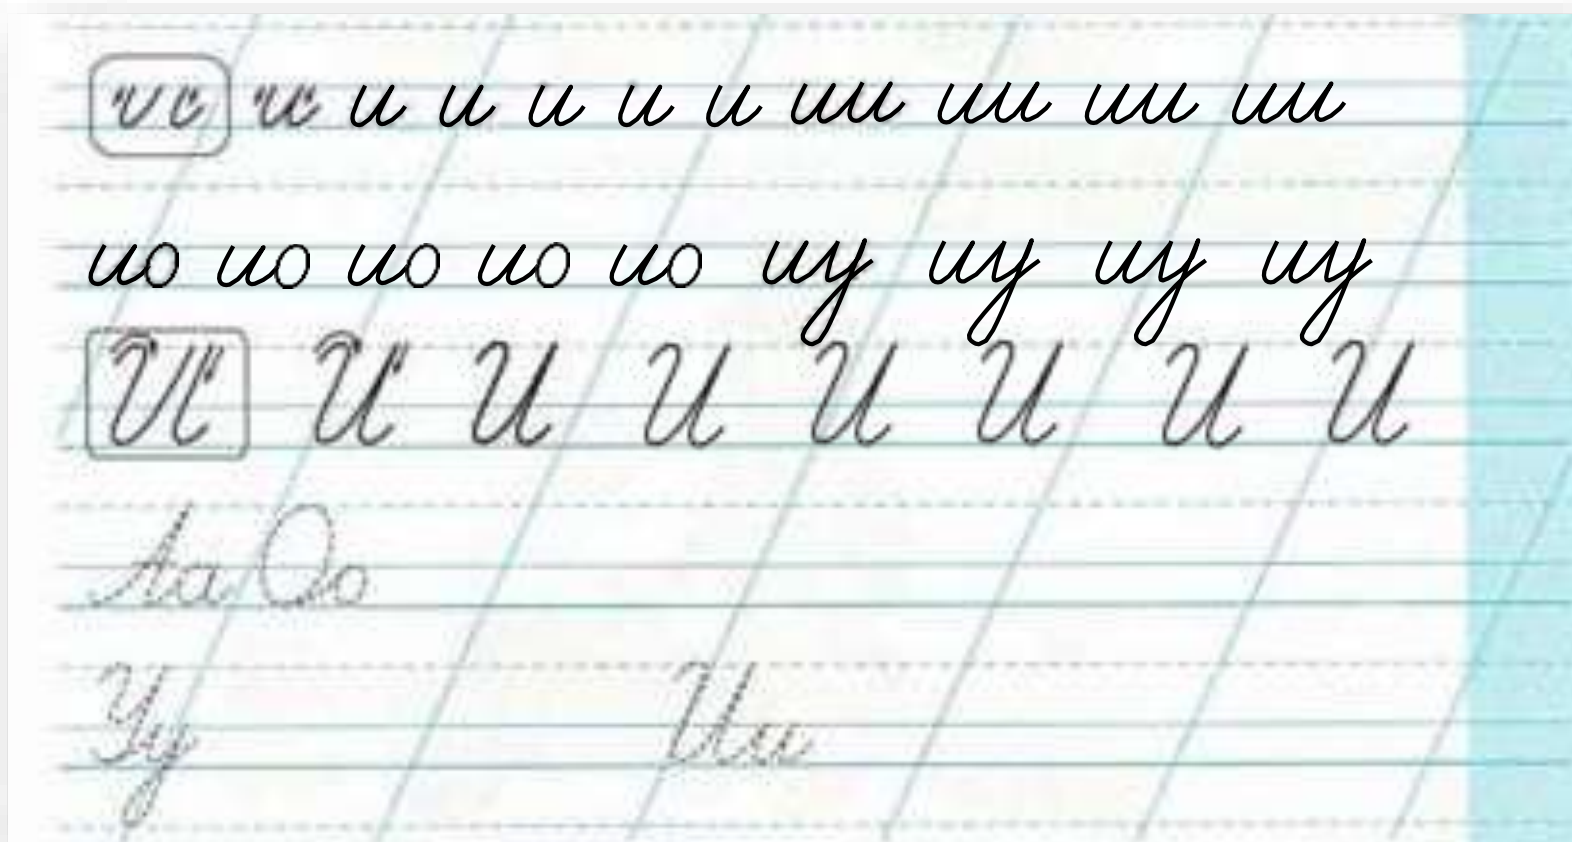 и и и и и и и ии ии ии ии
ио ио ио ио ио иу иу иу иу
И И И И И И И И
Аа Оо
Уу Ии